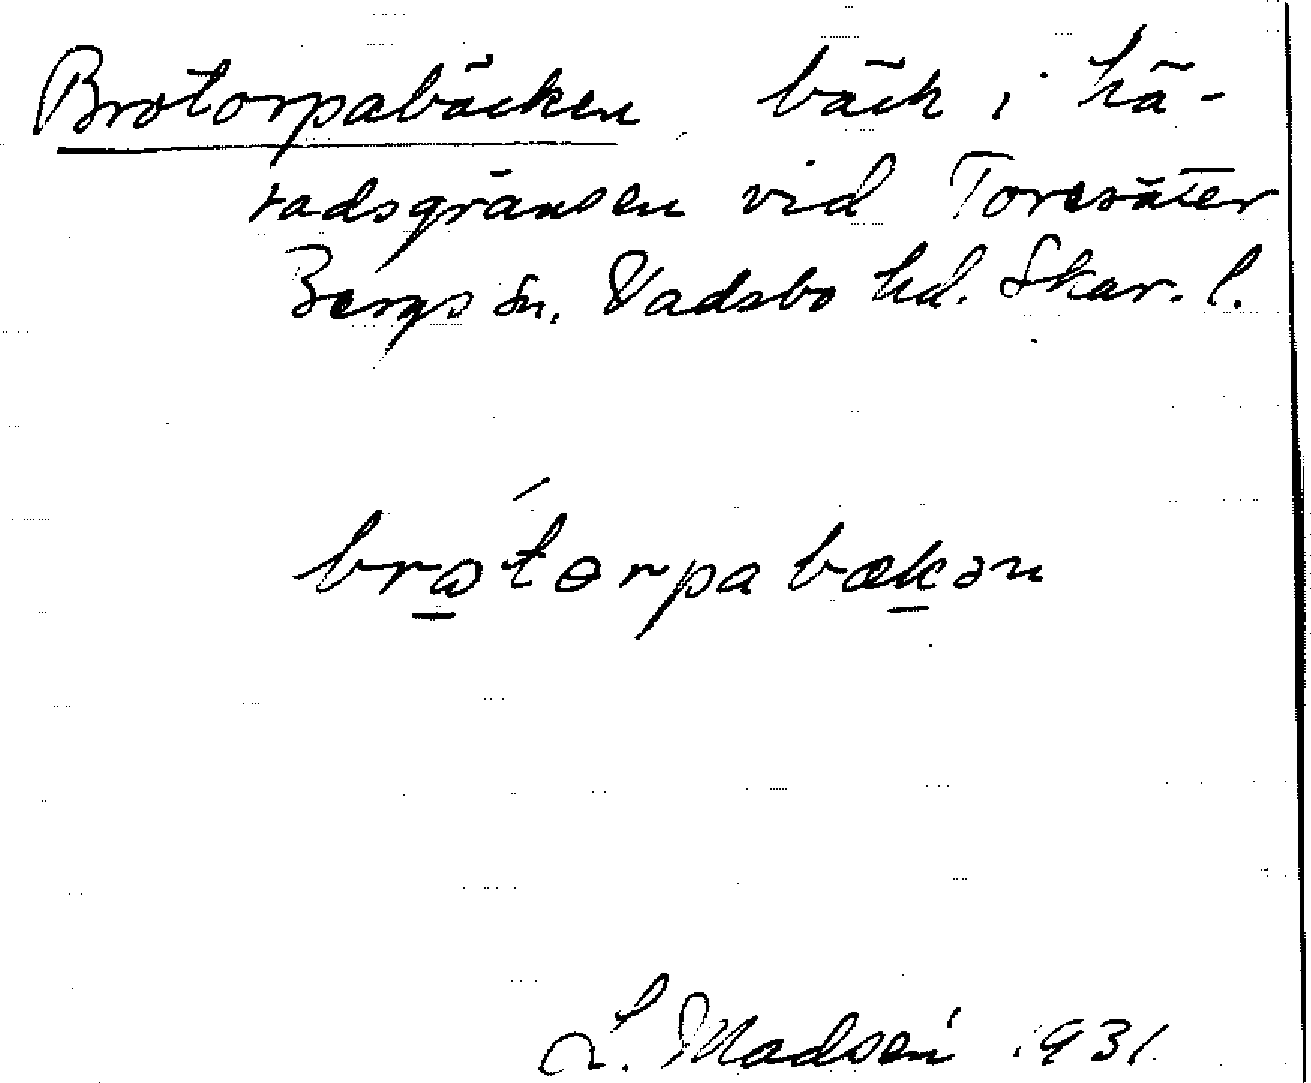 Brotorpabäcken bäck i hä-
radsgränsen vid Toresäter
Bergs sn. Vadsbo hd. Skar. l.
brωtɵrpabækən
L. Madsén 1931